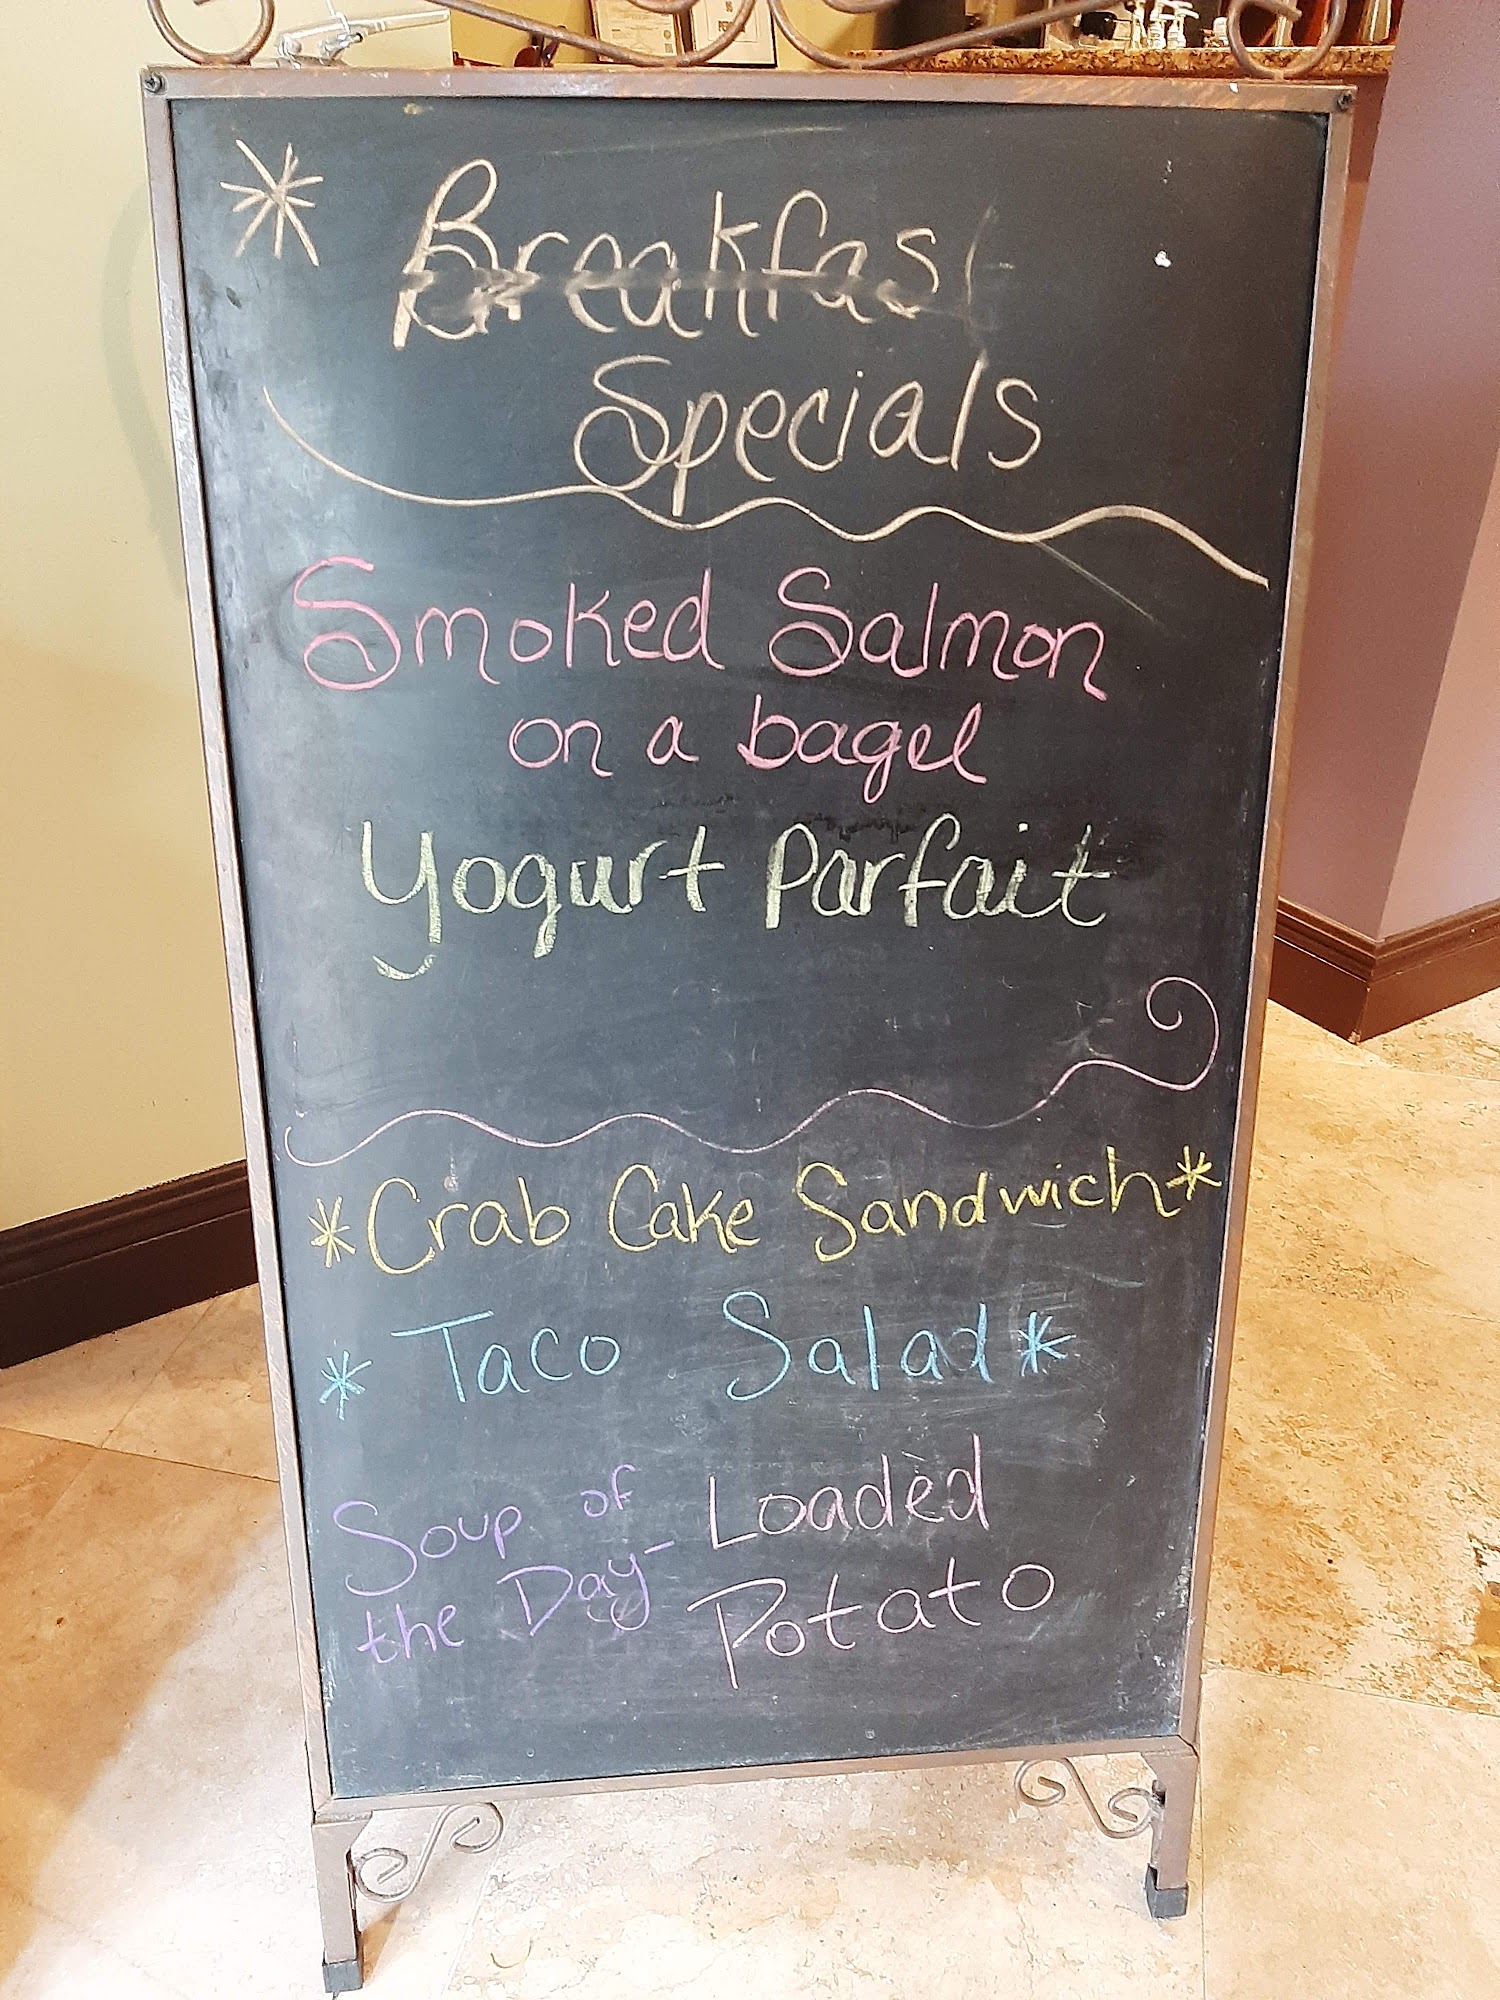 * Breakfast
Specials
Smoked Salmon
on a bagel
Yogurt Parfait
*Crab Cake Sandwich*
* Taco Salad *
Soup of
the Day-
Loaded
Potato